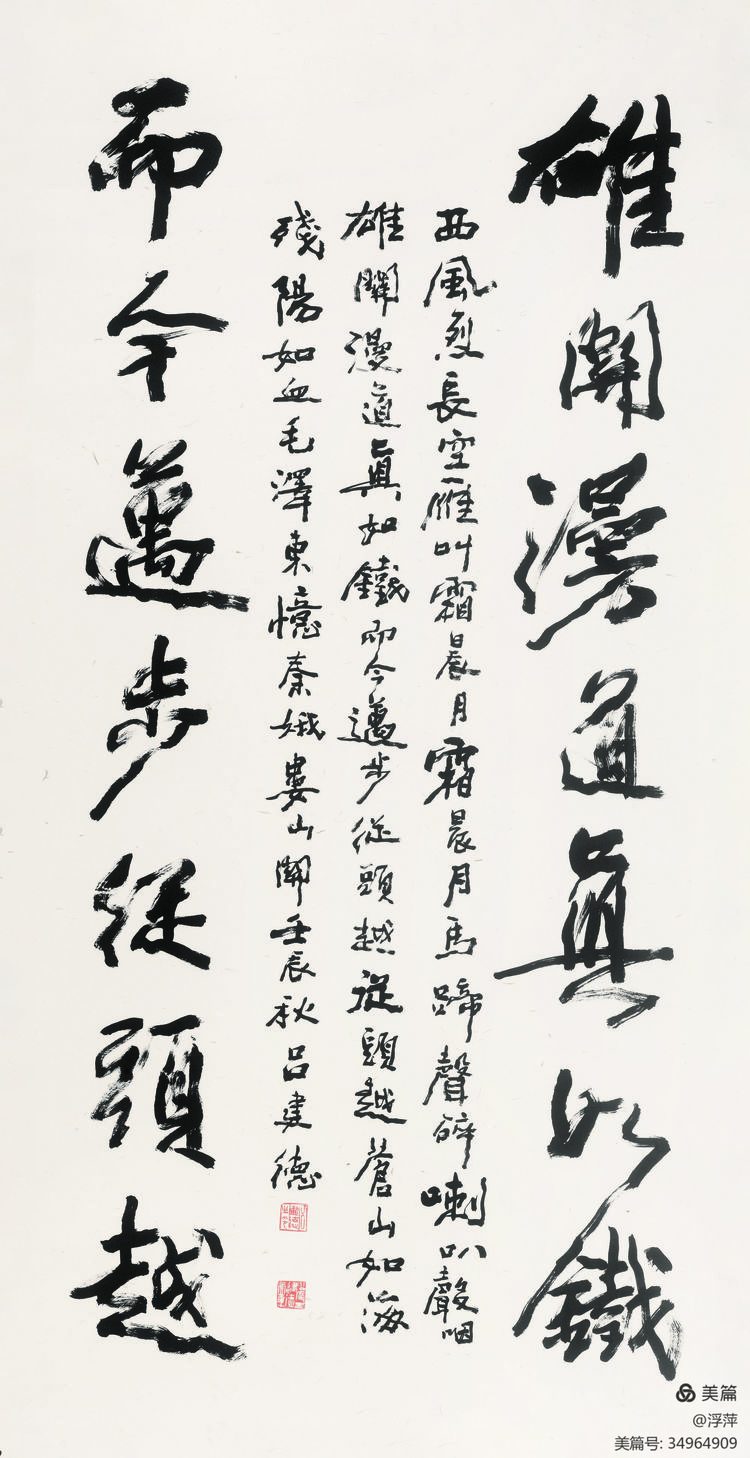 雄關漫道真如鐵
西風烈長空雁叫霜晨月霜晨月馬蹄聲碎喇叭聲咽
雄關漫道真如鐵而今邁步從頭越從頭越蒼山如海
殘陽如血毛澤東憶秦娥婁山關壬辰秋吕建德
而今邁步從頭越
美篇
@浮萍
美篇号: 34964909